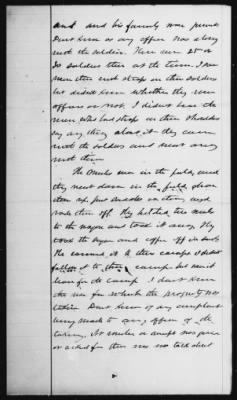 and and his family was present
Dont know as any officer was along
with the soldiers. There were 25 or
30 soldiers there at the time. I saw
men there with straps on their shoulders
but didnt know whether they were
officers or not. I didnt hear the
men who had straps on their shoulders
say any thing about it they came
with the soldiers and went away
with them
The mules was in the field, and
they went down in the field, drove
them up, put saddles on them and
rode them off. They hitched two mules
to the wagon and took it away. They
took the wagon and corn off in
He carried it to their camps I didnt
follow it to their camp but went
I dont know
the use for which the property was
taken Dont know of any complaint
being made to any officer of the
taking. No voucher or receipt was given
or asked for there was no talk about